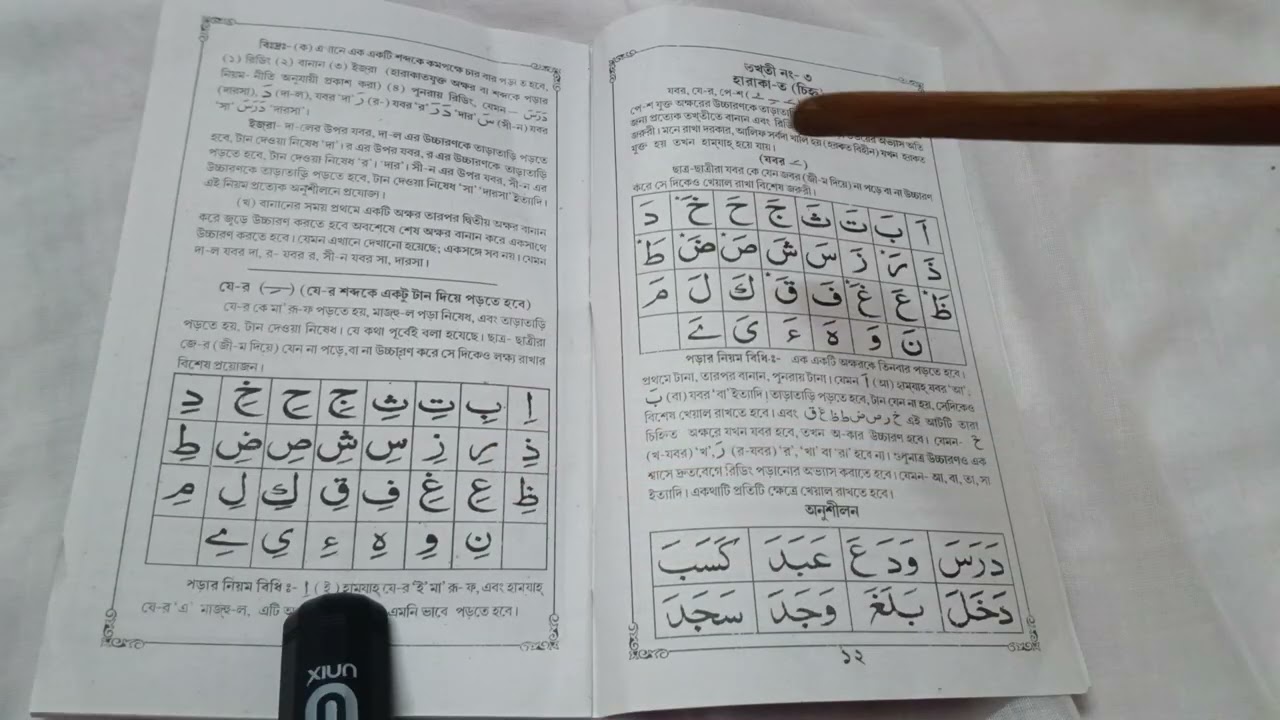 বিঃদ্রঃ- (ক) এখানে এক একটি শব্দকে কমপক্ষে চার বার পড়াতে হবে,
(১) রিডিং (২) বানান (৩) ইজরা (হারাকাতযুক্ত অক্ষর বা শব্দকে পড়ার
নিয়ম-নীতি অনুযায়ী প্রকাশ করা) (৪) পুনরায় রিডিং, যেমন – دَرَسَ
(দারসা), دَ (দা-ল), যবর 'দা' رَ (র-) যবর 'র' دَرَ 'দার' سَ (সী-ন) যবর
'সা' دَرَسَ 'দারসা'।
ইজরা- দা-লের উপর যবর, দা-ল এর উচ্চারণকে তাড়াতাড়ি পড়তে
হবে, টান দেওয়া নিষেধ 'দা'। র এর উপর যবর, র এর উচ্চারণকে তাড়াতাড়ি
পড়তে হবে, টান দেওয়া নিষেধ 'র'। 'দার'। সী-ন এর উপর যবর, সী-ন এর
উচ্চারণকে তাড়াতাড়ি পড়তে হবে, টান দেওয়া নিষেধ 'সা' 'দারসা' ইত্যাদি।
এই নিয়ম প্রত্যেক অনুশীলনে প্রযোজ্য।
(খ) বানানের সময় প্রথমে একটি অক্ষর তারপর দ্বিতীয় অক্ষর বানান
করে জুড়ে উচ্চারণ করতে হবে অবশেষে শেষ অক্ষর বানান করে একসাথে
উচ্চারণ করতে হবে। যেমন এখানে দেখানো হয়েছে; একসঙ্গে সব নয়। যেমন
দা-ল যবর দা, র- যবর র, সী-ন যবর সা, দারসা।
যে-র (ـِ) (যে-র শব্দকে একটু টান দিয়ে পড়তে হবে)
যে-র কে মা'রূ-ফ পড়তে হয়, মাজহু-ল পড়া নিষেধ, এবং তাড়াতাড়ি
পড়তে হয়, টান দেওয়া নিষেধ। যে কথা পূর্বেই বলা হয়েছে। ছাত্র- ছাত্রীরা
জে-র (জী-ম দিয়ে) যেন না পড়ে,বা না উচ্চারণ করে সে দিকেও লক্ষ্য রাখার
বিশেষ প্রয়োজন।
اِ بِ تِ ثِ جِ حِ خِ دِ
ذِ رِ زِ سِ شِ صِ ضِ طِ
ظِ عِ غِ فِ قِ كِ لِ مِ
نِ وِ هِ ءِ يِ ےِ
পড়ার নিয়ম বিধি ঃ- اِ (ই) হামযাহ্ যে-র 'ই' মা'রূ-ফ, এবং হামযাহ্
যে-র 'এ' মাজহু-ল, এটি এমনি ভাবে পড়তে হবে।
তখতী নং- ৩
হারাকা-ত (চিহ্ন)
যবর, যে-র, পে-শ (
পে-শ যুক্ত অক্ষরের উচ্চারণকে তাড়াতাড়ি
জন্য প্রত্যেক তখতীতে বানান এবং অভ্যাস অতি
জরুরী। মনে রাখা দরকার, আলিফ সর্বদা খালি হয় (হরকত বিহীন) যখন হরকত
যুক্ত হয় তখন হামযাহ্ হয়ে যায়।
(যবর ـَ)
ছাত্র-ছাত্রীরা যবর কে যেন জবর (জী-ম দিয়ে) না পড়ে বা না উচ্চারণ
করে সে দিকেও খেয়াল রাখা বিশেষ জরুরী।
اَ بَ تَ ثَ جَ حَ خَ دَ
ذَ رَ زَ سَ شَ صَ ضَ طَ
ظَ عَ غَ فَ قَ كَ لَ مَ
نَ وَ هَ ءَ يَ ےَ
পড়ার নিয়ম বিধি ঃ- এক একটি অক্ষরকে তিনবার পড়তে হবে।
প্রথমে টানা, তারপর বানান, পুনরায় টানা। যেমন اَ (আ) হামযাহ্ যবর 'আ',
بَ (বা) যবর 'বা' ইত্যাদি। তাড়াতাড়ি পড়তে হবে, টান যেন না হয়, সেদিকেও
বিশেষ খেয়াল রাখতে হবে। এবং خ ر ص ض ط ظ غ ق এই আটটি তারা
চিহ্নিত অক্ষরে যখন যবর হবে, তখন অ-কার উচ্চারণ হবে। যেমন- خَ
(খ-যবর) 'খ', رَ (র-যবর) 'র', 'খা' বা 'রা' হবে না। শুধুমাত্র উচ্চারণও এক
শ্বাসে দ্রুতবেগে রিডিং পড়ানোর অভ্যাস করাতে হবে। যেমন- আ, বা, তা, সা
ইত্যাদি। একথাটি প্রতিটি ক্ষেত্রে খেয়াল রাখতে হবে।
অনুশীলন
دَرَسَ وَدَعَ عَبَدَ كَسَبَ
دَخَلَ بَلَغَ وَجَدَ سَجَدَ
১২
UNIX